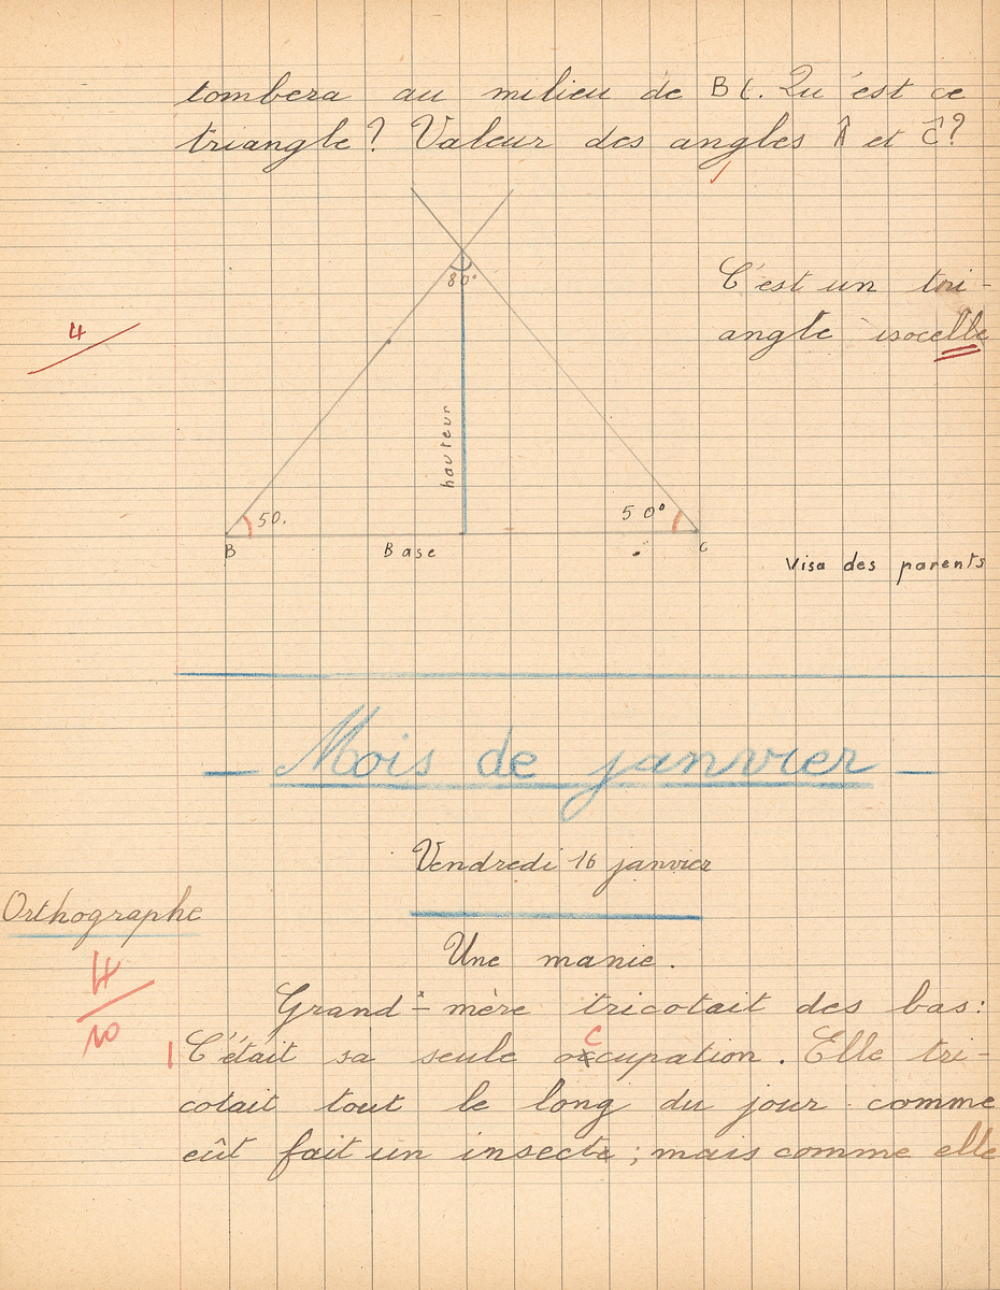 tombera au milieu de BC. Qu'est ce
triangle? Valeur des angles Â et Ĉ?
80°
C'est un tri-
angle isocelle
4
hauteur
50.
50°
B
Base
C
Visa des parents
— Mois de janvier —
Vendredi 16 janvier
Orthographe
4
10
Une manie.
Grand'-mère tricotait des bas:
C
| C'était sa seule occupation. Elle tri-
cotait tout le long du jour comme
eût fait un insecte; mais comme elle